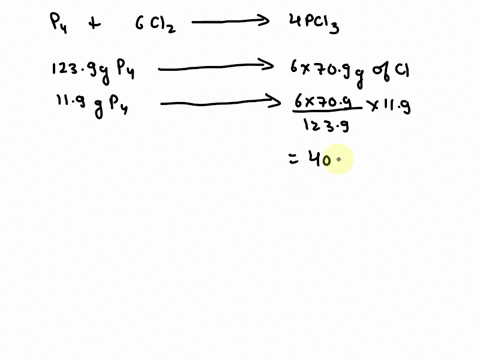 P₄ + 6Cl₂ ⟶ 4PCl₃
123.9g P₄ ⟶ 6×70.9g of Cl
11.9 g P₄ ⟶ 6×70.9/123.9 ×11.9
= 40.